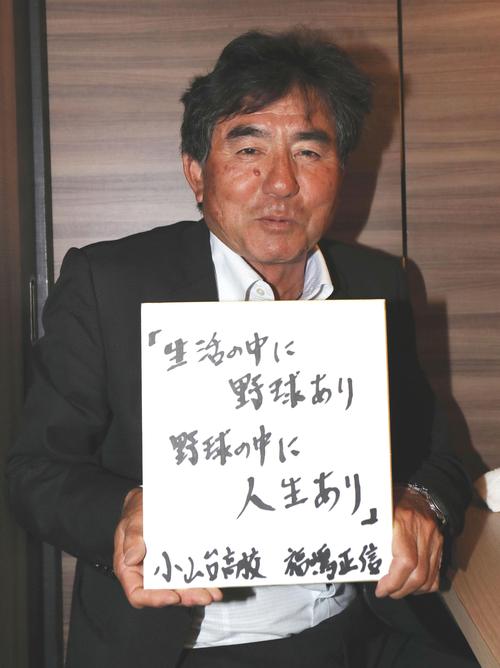 「生活の中に
野球あり
野球の中に
人生あり」
小山台高校 福嶋正信